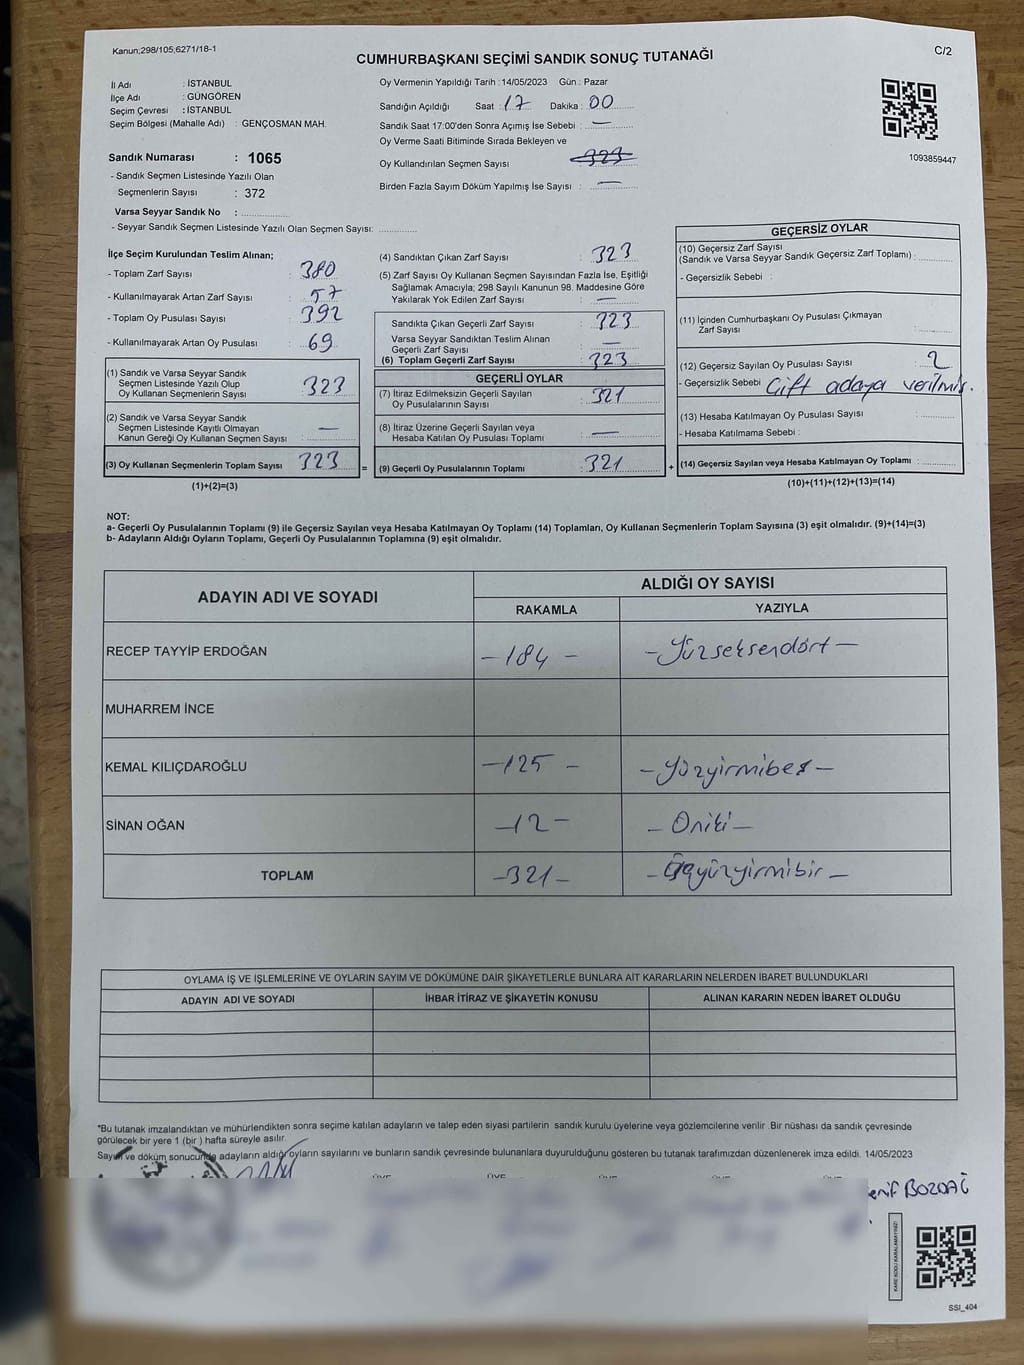 Kanun;298/105;6271/18-1
C/2
CUMHURBAŞKANI SEÇİMİ SANDIK SONUÇ TUTANAĞI
İl Adı : İSTANBUL
İlçe Adı : GÜNGÖREN
Seçim Çevresi : İSTANBUL
Seçim Bölgesi (Mahalle Adı) : GENÇOSMAN MAH.
Sandık Numarası : 1065
- Sandık Seçmen Listesinde Yazılı Olan
Seçmenlerin Sayısı : 372
Varsa Seyyar Sandık No :
- Seyyar Sandık Seçmen Listesinde Yazılı Olan Seçmen Sayısı:
Oy Vermenin Yapıldığı Tarih : 14/05/2023 Gün : Pazar
Sandığın Açıldığı Saat : 17 Dakika : 00
Sandık Saat 17:00'den Sonra Açımış İse Sebebi : —
Oy Verme Saati Bitiminde Sırada Bekleyen ve
Oy Kullandırılan Seçmen Sayısı 323
Birden Fazla Sayım Döküm Yapılmış İse Sayısı : —
1093859447
İlçe Seçim Kurulundan Teslim Alınan;
- Toplam Zarf Sayısı : 380
- Kullanılmayarak Artan Zarf Sayısı : 57
- Toplam Oy Pusulası Sayısı : 392
- Kullanılmayarak Artan Oy Pusulası : 69
(1) Sandık ve Varsa Seyyar Sandık
Seçmen Listesinde Yazılı Olup
Oy Kullanan Seçmenlerin Sayısı : 323
(2) Sandık ve Varsa Seyyar Sandık
Seçmen Listesinde Kayıtlı Olmayan
Kanun Gereği Oy Kullanan Seçmen Sayısı : —
(3) Oy Kullanan Seçmenlerin Toplam Sayısı 323
(1)+(2)=(3)
(4) Sandıktan Çıkan Zarf Sayısı : 323
(5) Zarf Sayısı Oy Kullanan Seçmen Sayısından Fazla İse, Eşitliği
Sağlamak Amacıyla; 298 Sayılı Kanunun 98. Maddesine Göre
Yakılarak Yok Edilen Zarf Sayısı : —
Sandıkta Çıkan Geçerli Zarf Sayısı : 323
Varsa Seyyar Sandıktan Teslim Alınan
Geçerli Zarf Sayısı : —
(6) Toplam Geçerli Zarf Sayısı : 323
GEÇERLİ OYLAR
(7) İtiraz Edilmeksizin Geçerli Sayılan
Oy Pusulalarının Sayısı : 321
(8) İtiraz Üzerine Geçerli Sayılan veya
Hesaba Katılan Oy Pusulası Toplamı : —
= (9) Geçerli Oy Pusulalarının Toplamı : 321
GEÇERSİZ OYLAR
(10) Geçersiz Zarf Sayısı
(Sandık ve Varsa Seyyar Sandık Geçersiz Zarf Toplamı) :
- Geçersizlik Sebebi :
(11) İçinden Cumhurbaşkanı Oy Pusulası Çıkmayan
Zarf Sayısı :
(12) Geçersiz Sayılan Oy Pusulası Sayısı : 2
- Geçersizlik Sebebi : Çift adaya verilmiş.
(13) Hesaba Katılmayan Oy Pusulası Sayısı :
- Hesaba Katılmama Sebebi :
+ (14) Geçersiz Sayılan veya Hesaba Katılmayan Oy Toplamı :
(10)+(11)+(12)+(13)=(14)
NOT:
a- Geçerli Oy Pusulalarının Toplamı (9) ile Geçersiz Sayılan veya Hesaba Katılmayan Oy Toplamı (14) Toplamları, Oy Kullanan Seçmenlerin Toplam Sayısına (3) eşit olmalıdır. (9)+(14)=(3)
b- Adayların Aldığı Oyların Toplamı, Geçerli Oy Pusulalarının Toplamına (9) eşit olmalıdır.
ADAYIN ADI VE SOYADI ALDIĞI OY SAYISI
RAKAMLA YAZIYLA
RECEP TAYYİP ERDOĞAN – 184 – – Yüzseksendört –
MUHARREM İNCE
KEMAL KILIÇDAROĞLU – 125 – – Yüzyirmibeş –
SİNAN OĞAN – 12 – – Oniki –
TOPLAM – 321 – – Üçyüzyirmibir –
OYLAMA İŞ VE İŞLEMLERİNE VE OYLARIN SAYIM VE DÖKÜMÜNE DAİR ŞİKAYETLERLE BUNLARA AİT KARARLARIN NELERDEN İBARET BULUNDUKLARI
ADAYIN ADI VE SOYADI İHBAR İTİRAZ VE ŞİKAYETİN KONUSU ALINAN KARARIN NEDEN İBARET OLDUĞU
*Bu tutanak imzalandıktan ve mühürlendikten sonra seçime katılan adayların ve talep eden siyasi partilerin sandık kurulu üyelerine veya gözlemcilerine verilir .Bir nüshası da sandık çevresinde
görülecek bir yere 1 (bir ) hafta süreyle asılır.
Sayım ve döküm sonucunda adayların aldığı oyların sayılarını ve bunların sandık çevresinde bulunanlara duyurulduğunu gösteren bu tutanak tarafımızdan düzenlenerek imza edildi. 14/05/2023
BOZDAĞ
KARE KODU KARALAMAYINIZ!
SSI_404